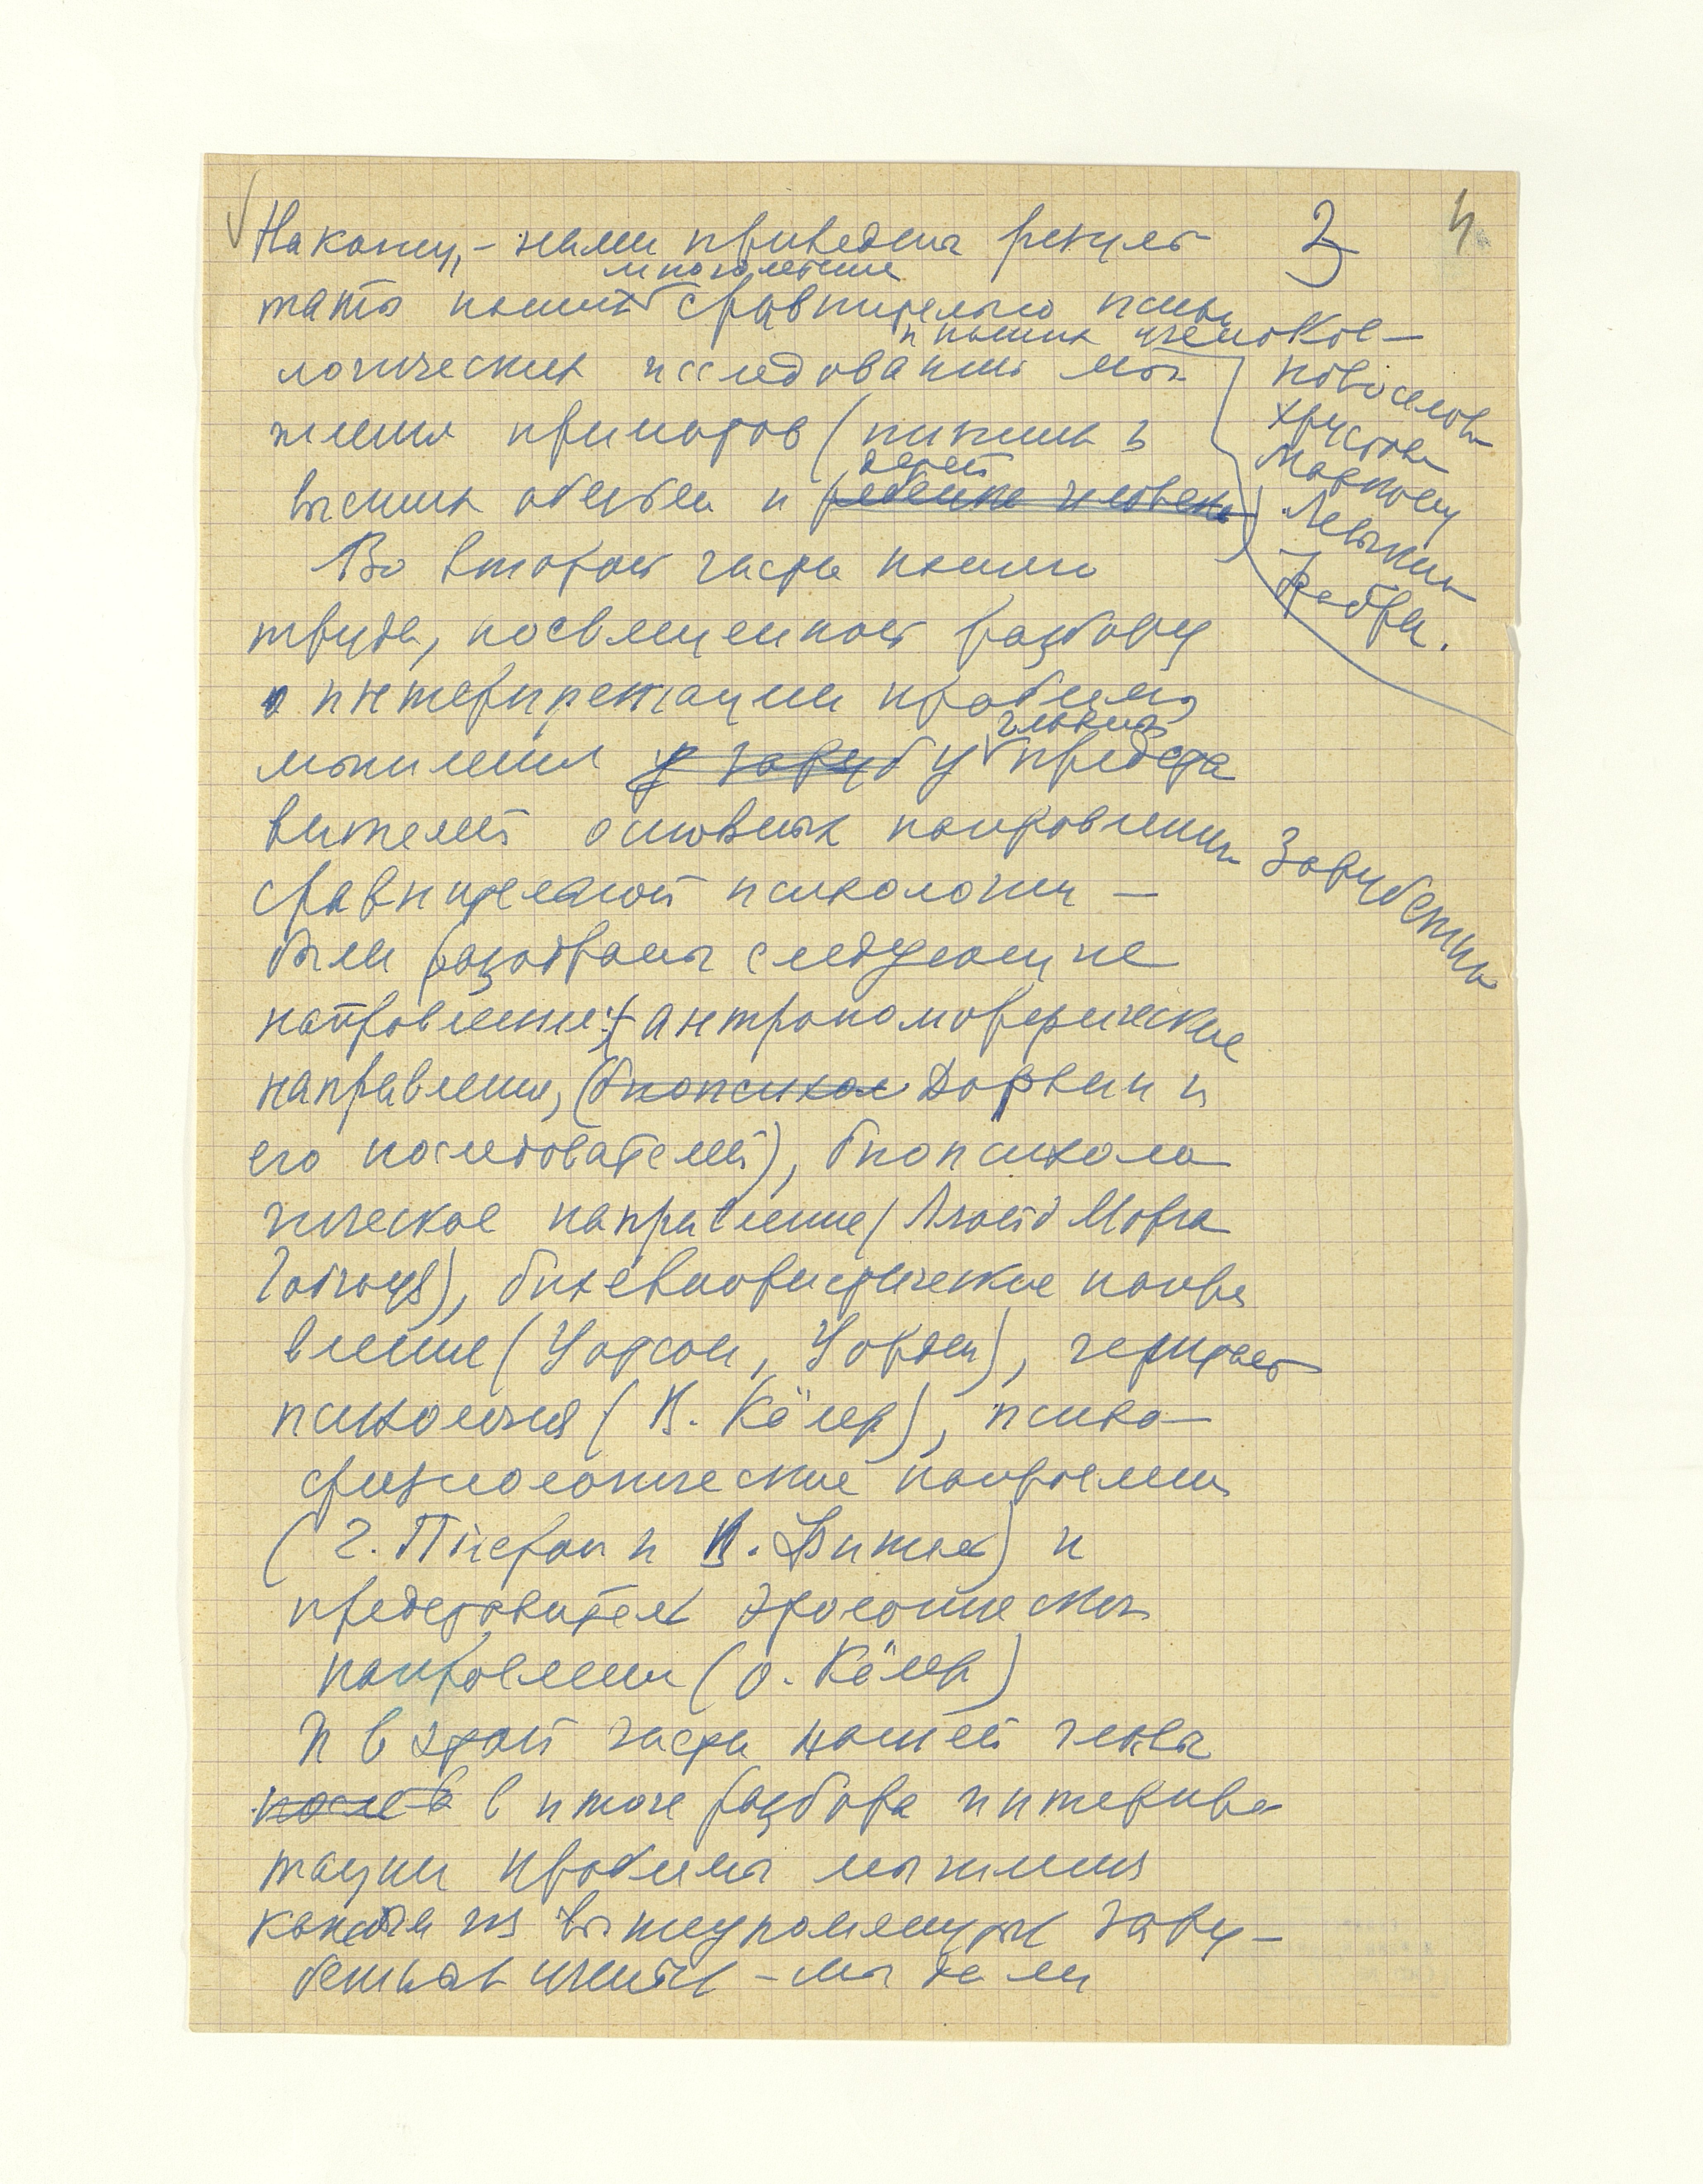 3
4
Наконец, – нами приведены резуль
многолетние
таты наших сравнительно психо
и наших учеников –
логических исследований мы
шления приматов (низших и
детей
высших обезьян и ребенка человека)
Новоселова
Хрустов
Левыкин
Во второй части нашего
труда, посвященной разбору
интерпретации проблемы
главных
мышления у заруб у предста
вителей основных направлений
зарубежных
сравнительной психологии –
были разобраны следующие
направления: антропоморфическое
направление, (биопсихол Дарвин и
его последователей), биопсихоло
гическое направление (Ллойд Морган
), бихевиористическое напра
вление (Уотсон, Уорден), гештальт
психология (В. Кёлер), психо–
физиологическое направление
(Г. Пьерон и В. ) и
представителя этологического
направления (О. Кёлер)
И в этой части нашей главы
после в итоге разбора интерпре
тации проблемы мышления
каждым из вышеупомянутых зару–
бежных ученых – мы дали